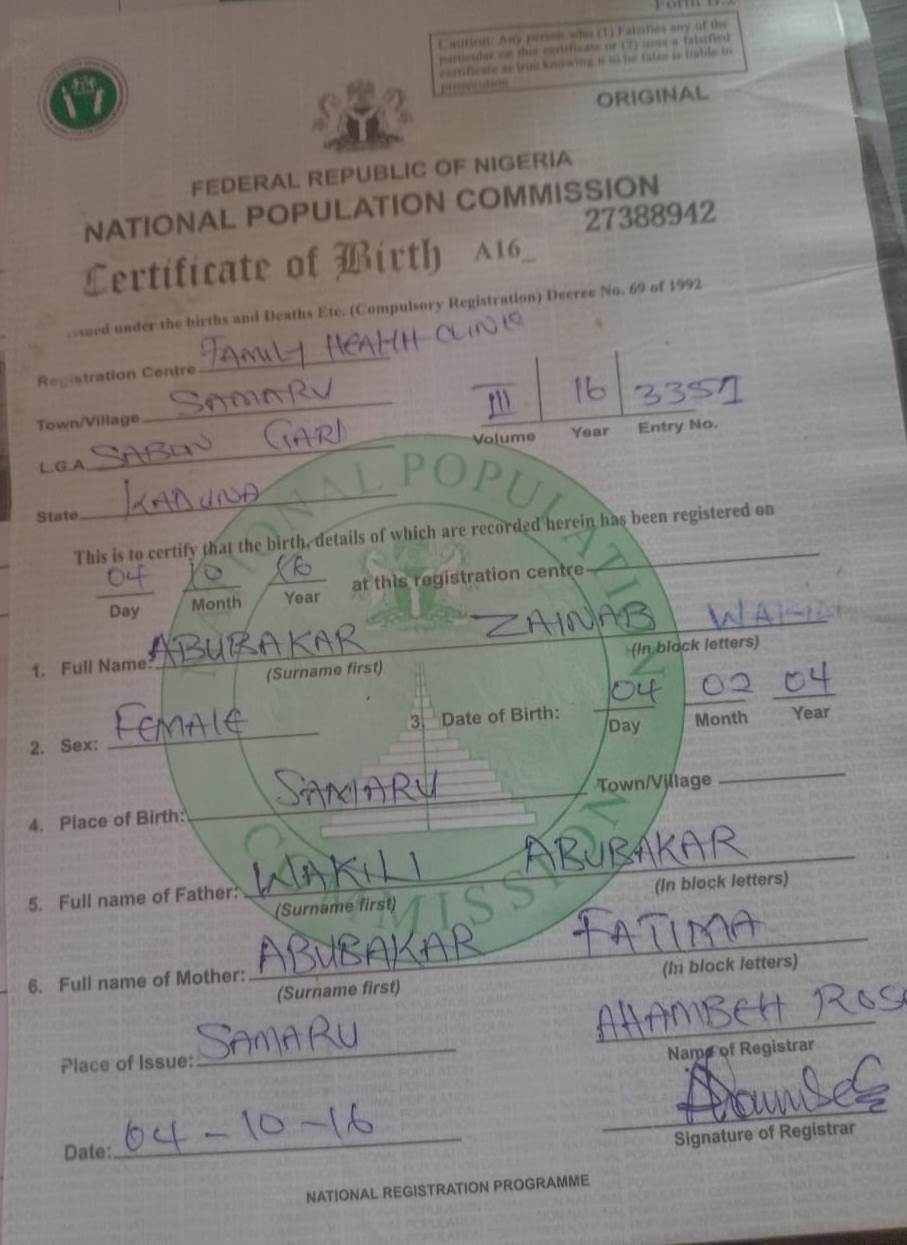 Caution: Any person who (1) Falsifies any of the
particular on this certificate or (2) uses a falsified
certificate as true knowing it to be false is liable to
prosecution
ORIGINAL
FEDERAL REPUBLIC OF NIGERIA
NATIONAL POPULATION COMMISSION
27388942
Certificate of Birth A16_
issued under the births and Deaths Etc. (Compulsory Registration) Decree No. 69 of 1992
Registration Centre FAMILY HEALTH CLINIC
Town/Village SAMARU
III 16 3357
Volume Year Entry No.
L.G.A SABON GARI
State KADUNA
This is to certify that the birth, details of which are recorded herein has been registered on
04 10 16 at this registration centre
Day Month Year
1. Full Name: ABUBAKAR ZAINAB WAKILI
(Surname first) (In block letters)
2. Sex: FEMALE 3. Date of Birth: 04 02 04
Day Month Year
4. Place of Birth: SAMARU Town/Village
5. Full name of Father: WAKILI ABUBAKAR
(Surname first) (In block letters)
6. Full name of Mother: ABUBAKAR FATIMA
(Surname first) (In block letters)
Place of Issue: SAMARU AHAMBEH ROSE
Name of Registrar
Date: 04-10-16
Signature of Registrar
NATIONAL REGISTRATION PROGRAMME
NATIONAL POPULATION COMMISSION